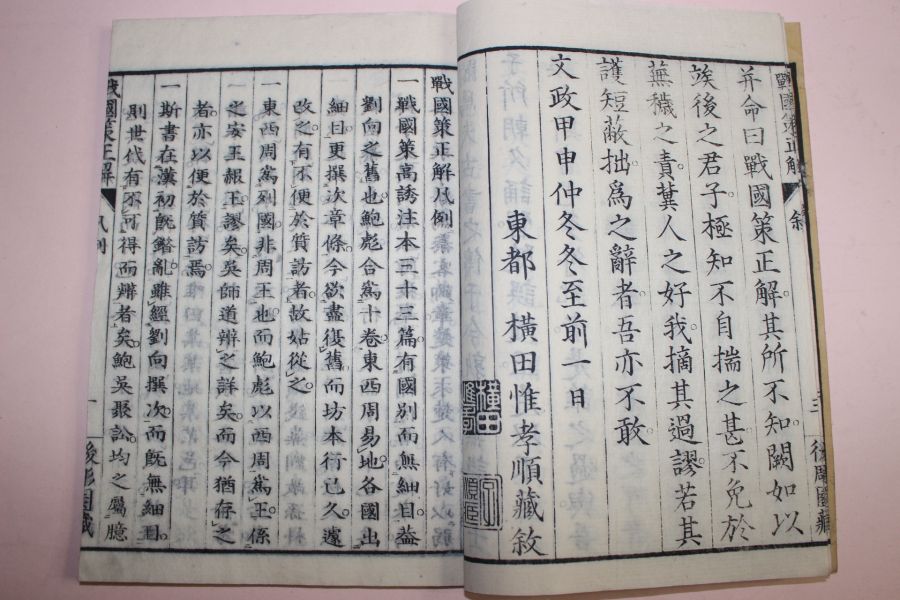 戰國策正解 敘
幷命曰戰國策正解。其所不知闕如以
竢後之君子。極知不自揣之甚。不免於
蕪穢之責。冀人之好我摘其過謬。若其
護短蔽拙。爲之辭者。吾亦不敢。
文政甲申仲冬冬至前一日
東都 橫田惟孝順藏敘
橫田惟孝
戰國策正解凡例
一戰國策高誘注本三十三篇。有國別而無細目。蓋
劉向之舊也。鮑彪合爲十卷。東西周易地。各國出
細目。更撰次章條。今欲盡復舊。而坊本行已久。遽
改之。有不便於質訪者。故姑從之。
一東西周爲列國。非周王也。而鮑彪以西周爲王。係
之安王赧王。謬矣。吳師道辨之詳矣。而今猶存之
者。亦以便於質訪焉。
一斯書在漢初既錯亂。雖經劉向撰次。而既無細目。
則世代有不可得而辨者矣。鮑吳聚訟。均之屬臆
戰國策正解 凡例 一